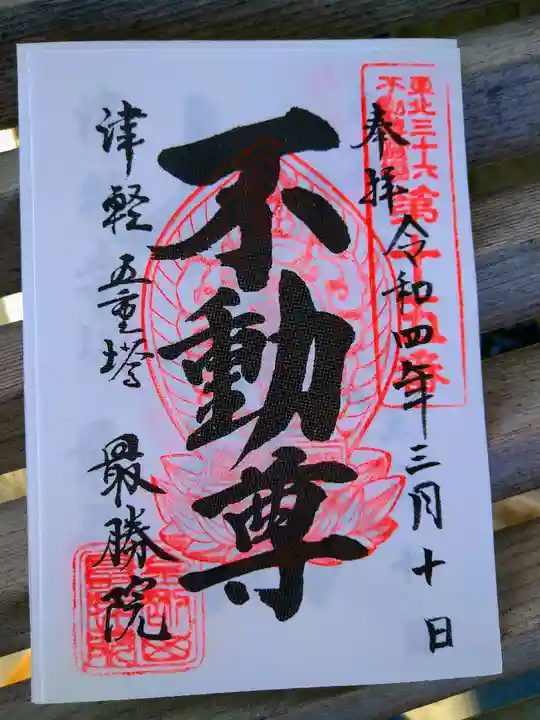 東北三十六
不動尊霊場
第十五番
奉拝
令和四年三月十日
不動尊
津軽五重塔
最勝院